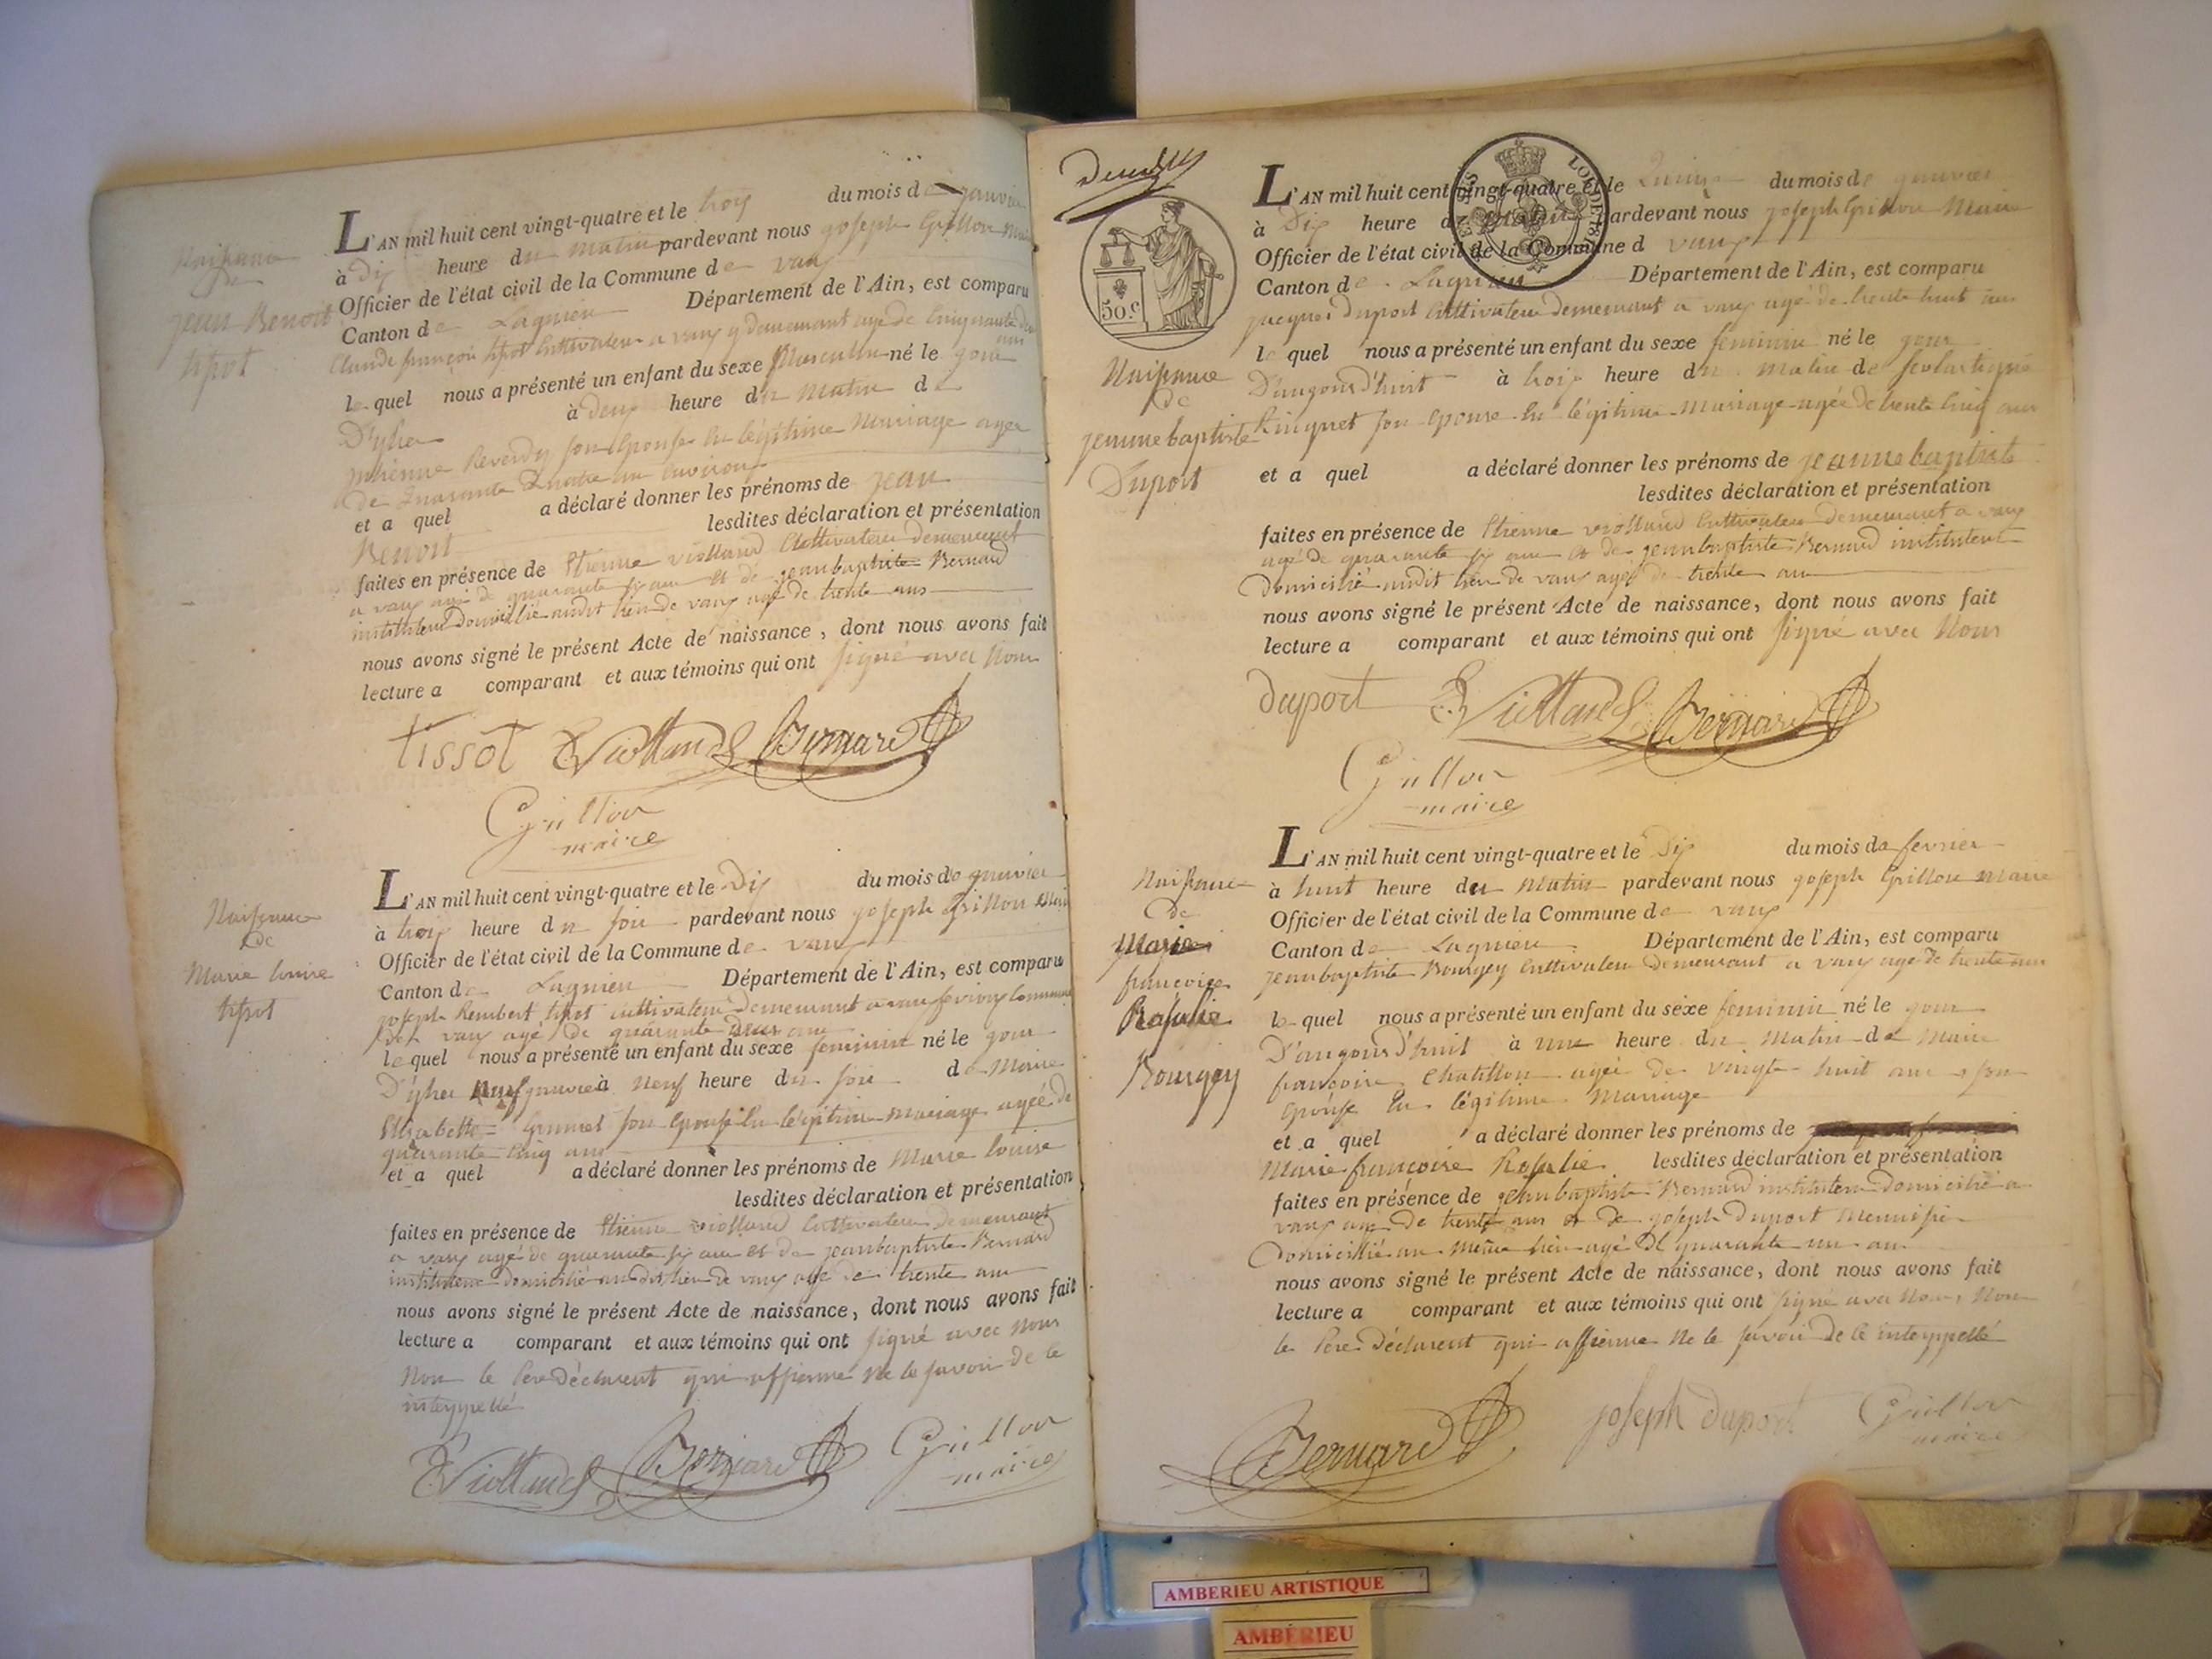 Naissance
de
jean Benoit
tissot
L'AN mil huit cent vingt-quatre et le trois du mois de janvier
à Dix heure du matin pardevant nous joseph Grillon Maire
Officier de l'état civil de la Commune de vaux
Canton de Lagnieu Département de l'Ain, est comparu
Claude françois tissot Cultivateur a vaux y demeurant agé de Cinquante deux
ans
le quel nous a présenté un enfant du sexe Masculin né le jour
D'yher à deux heure du Matin de
Reverdy son Epouse En légitime Mariage agée
de Quarante Quatre an Environ
et a quel a déclaré donner les prénoms de jean
Benoit lesdites déclaration et présentation
faites en présence de Etienne Violland Cultivateur demeurant
a vaux agé de quarante six ans et de jean baptiste Bernard
instituteur domicilié audit lieu de vaux agé de trente ans
nous avons signé le présent Acte de naissance, dont nous avons fait
lecture a comparant et aux témoins qui ont signé avec Nous
tissot EViolland Bernard
Grillon
maire
Naissance
de
Marie louise
tissot
L'AN mil huit cent vingt-quatre et le Dix du mois de janvier
à trois heure du soir pardevant nous joseph Grillon Maire
Officier de l'état civil de la Commune de vaux
Canton de Lagnieu Département de l'Ain, est comparu
joseph Rembert tissot cultivateur demeurant a vaux fevroux Commune
de vaux agé de quarante deux ans
le quel nous a présenté un enfant du sexe feminin né le jour
D'yher neuf janvier à Neuf heure du soir de Marie
Elisabette Grumet son Epouse En légitime mariage agée de
quarante Cinq ans
et a quel a déclaré donner les prénoms de Marie louise
lesdites déclaration et présentation
faites en présence de Etienne Violland Cultivateur demeurant
a vaux agé de quarante six ans et de jean baptiste Bernard
instituteur domicilié audit lieu de vaux agé de trente ans
nous avons signé le présent Acte de naissance, dont nous avons fait
lecture a comparant et aux témoins qui ont signé avec Nous
Non le Pere déclarent qui affirme Ne le savoir de ce
interppellé
EViolland Bernard Grillon
maire
50.c
LOI DE 1816
Naissance
de
jeanne baptiste
Duport
L'AN mil huit cent vingt-quatre et le Quinze du mois de janvier
à Dix heure du Matin pardevant nous joseph Grillon Maire
Officier de l'état civil de la Commune d vaux
Canton de Lagnieu Département de l'Ain, est comparu
jacques Duport Cultivateur demeurant a vaux agé de trente huit ans
le quel nous a présenté un enfant du sexe feminin né le jour
D'aujourd'huit à trois heure du matin de scolastique
Quinquet son Epouse En légitime Mariage agée de trente Cinq ans
et a quel a déclaré donner les prénoms de jeanne baptiste
lesdites déclaration et présentation
faites en présence de Etienne Violland Cultivateur demeurant a vaux
agé de quarante six ans et de jean baptiste Bernard instituteur
Domicilié audit lieu de vaux agé de trente an
nous avons signé le présent Acte de naissance, dont nous avons fait
lecture a comparant et aux témoins qui ont signé avec Nous
duport EViolland Bernard
Grillon
maire
Naissance
de
Marie
françoise
Rosalie
Bourgey
L'AN mil huit cent vingt-quatre et le Dix du mois de fevrier
à huit heure du Matin pardevant nous joseph Grillon Maire
Officier de l'état civil de la Commune de vaux
Canton de Lagnieu Département de l'Ain, est comparu
jean baptiste Bourgey Cultivateur demeurant a vaux agé de trente ans
le quel nous a présenté un enfant du sexe feminin né le jour
D'aujourd'huit à une heure du Matin de Marie
françoise Chatillon agée de vingt huit ans son
Epouse En légitime Mariage
et a quel a déclaré donner les prénoms de
Marie françoise Rosalie lesdites déclaration et présentation
faites en présence de jean baptiste Bernard instituteur Domicilié a
vaux agé de trente ans et de joseph Duport Menuisier
Domicillié au même lieu agé de quarante un an
nous avons signé le présent Acte de naissance, dont nous avons fait
lecture a comparant et aux témoins qui ont signé avec Nous, Non
le Pere Déclarent qui affirme Ne le savoir de ce interppellé
Bernard joseph duport Grillon
maire
AMBERIEU ARTISTIQUE
AMBÉRIEU